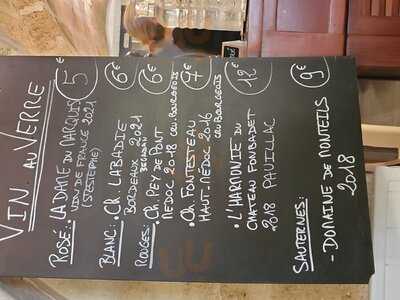 VIN AU VERRE
ROSÉ: LA DAME DU MARQUIS 5€
VIN DE FRANCE 2021
(ST ESTEPHE)
BLANC: • CH. LABADIE 6€
BORDEAUX 2021
ROUGES: • CH. PEY DE PONT 6€
BEGADAN
MEDOC 2018 CRU BOURGEOIS
• CH. FONTESTEAU 7€
HAUT-MEDOC 2016
CRU BOURGEOIS
• L'HARMONIE DU 12€
CHATEAU FONBADET
2018 PAUILLAC
SAUTERNES: 9€
- DOMAINE DE MONTEILS
2018